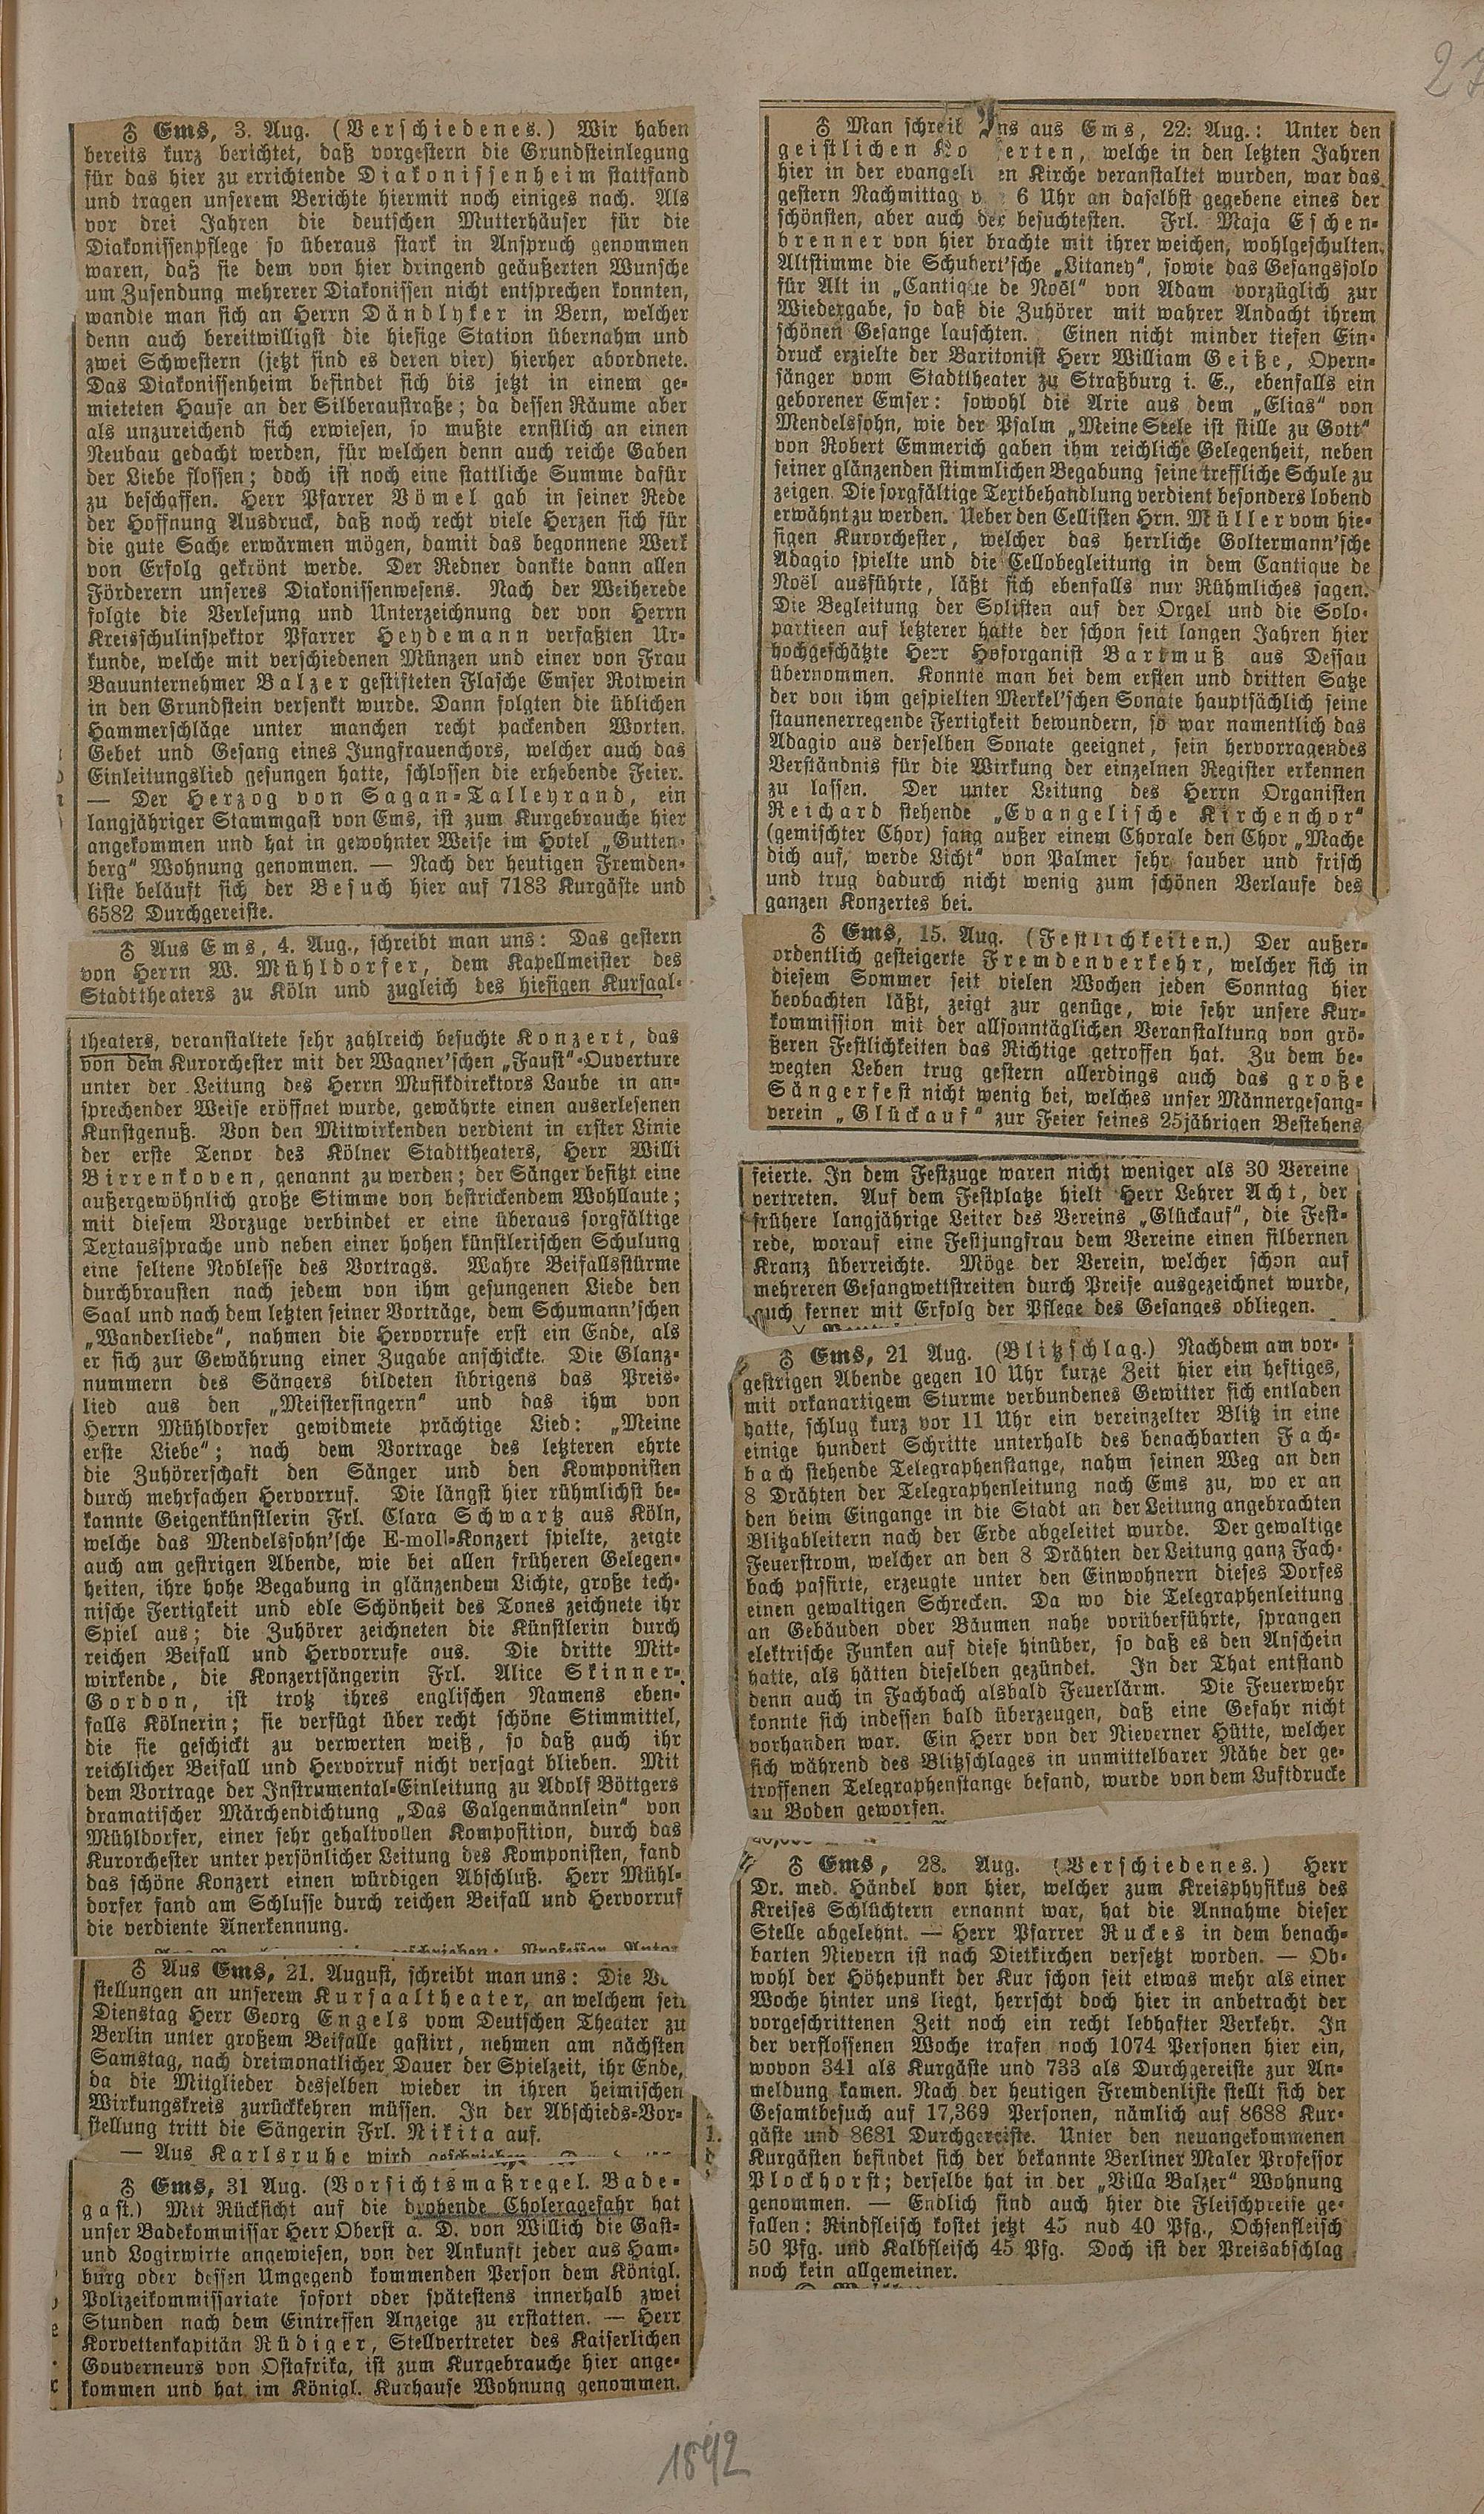 27
♁ Ems, 3. Aug. (Verschiedenes.) Wir haben
bereits kurz berichtet, daß vorgestern die Grundsteinlegung
für das hier zu errichtende Diakonissenheim stattfand
und tragen unserem Berichte hiermit noch einiges nach. Als
vor drei Jahren die deutschen Mutterhäuser für die
Diakonissenpflege so überaus stark in Anspruch genommen
waren, daß sie dem von hier dringend geäußerten Wunsche
um Zusendung mehrerer Diakonissen nicht entsprechen konnten,
wandte man sich an Herrn Dändlyker in Bern, welcher
denn auch bereitwilligst die hiesige Station übernahm und
zwei Schwestern (jetzt sind es deren vier) hierher abordnete.
Das Diakonissenheim befindet sich bis jetzt in einem ge-
mieteten Hause an der Silberaustraße; da dessen Räume aber
als unzureichend sich erwiesen, so mußte ernstlich an einen
Neubau gedacht werden, für welchen denn auch reiche Gaben
der Liebe flossen; doch ist noch eine stattliche Summe dafür
zu beschaffen. Herr Pfarrer Vömel gab in seiner Rede
der Hoffnung Ausdruck, daß noch recht viele Herzen sich für
die gute Sache erwärmen mögen, damit das begonnene Werk
von Erfolg gekrönt werde. Der Redner dankte dann allen
Förderern unseres Diakonissenwesens. Nach der Weiherede
folgte die Verlesung und Unterzeichnung der von Herrn
Kreisschulinspektor Pfarrer Heydemann verfaßten Ur-
kunde, welche mit verschiedenen Münzen und einer von Frau
Bauunternehmer Balzer gestifteten Flasche Emser Rotwein
in den Grundstein versenkt wurde. Dann folgten die üblichen
Hammerschläge unter manchen recht packenden Worten.
Gebet und Gesang eines Jungfrauenchors, welcher auch das
Einleitungslied gesungen hatte, schlossen die erhebende Feier.
— Der Herzog von Sagan-Talleyrand, ein
langjähriger Stammgast von Ems, ist zum Kurgebrauche hier
angekommen und hat in gewohnter Weise im Hotel „Gutten-
berg“ Wohnung genommen. — Nach der heutigen Fremden-
liste beläuft sich der Besuch hier auf 7183 Kurgäste und
6582 Durchgereiste.
♁ Aus Ems, 4. Aug., schreibt man uns: Das gestern
von Herrn W. Mühldorfer, dem Kapellmeister des
Stadttheaters zu Köln und zugleich des hiesigen Kursaal-
theaters, veranstaltete sehr zahlreich besuchte Konzert, das
von dem Kurorchester mit der Wagner'schen „Faust“-Ouverture
unter der Leitung des Herrn Musikdirektors Laube in an-
sprechender Weise eröffnet wurde, gewährte einen auserlesenen
Kunstgenuß. Von den Mitwirkenden verdient in erster Linie
der erste Tenor des Kölner Stadttheaters, Herr Willi
Birrenkoven, genannt zu werden; der Sänger besitzt eine
außergewöhnlich große Stimme von bestrickendem Wohllaute;
mit diesem Vorzuge verbindet er eine überaus sorgfältige
Textaussprache und neben einer hohen künstlerischen Schulung
eine seltene Noblesse des Vortrags. Wahre Beifallsstürme
durchbrausten nach jedem von ihm gesungenen Liede den
Saal und nach dem letzten seiner Vorträge, dem Schumann'schen
„Wanderliede“, nahmen die Hervorrufe erst ein Ende, als
er sich zur Gewährung einer Zugabe anschickte. Die Glanz-
nummern des Sängers bildeten übrigens das Preis-
lied aus den „Meistersingern“ und das ihm von
Herrn Mühldorfer gewidmete prächtige Lied: „Meine
erste Liebe“; nach dem Vortrage des letzteren ehrte
die Zuhörerschaft den Sänger und den Komponisten
durch mehrfachen Hervorruf. Die längst hier rühmlichst be-
kannte Geigenkünstlerin Frl. Clara Schwartz aus Köln,
welche das Mendelssohn'sche E-moll-Konzert spielte, zeigte
auch am gestrigen Abende, wie bei allen früheren Gelegen-
heiten, ihre hohe Begabung in glänzendem Lichte, große tech-
nische Fertigkeit und edle Schönheit des Tones zeichnete ihr
Spiel aus; die Zuhörer zeichneten die Künstlerin durch
reichen Beifall und Hervorrufe aus. Die dritte Mit-
wirkende, die Konzertsängerin Frl. Alice Skinner-
Gordon, ist trotz ihres englischen Namens eben-
falls Kölnerin; sie verfügt über recht schöne Stimmittel,
die sie geschickt zu verwerten weiß, so daß auch ihr
reichlicher Beifall und Hervorruf nicht versagt blieben. Mit
dem Vortrage der Instrumental-Einleitung zu Adolf Böttgers
dramatischer Märchendichtung „Das Galgenmännlein“ von
Mühldorfer, einer sehr gehaltvollen Komposition, durch das
Kurorchester unter persönlicher Leitung des Komponisten, fand
das schöne Konzert einen würdigen Abschluß. Herr Mühl-
dorfer fand am Schlusse durch reichen Beifall und Hervorruf
die verdiente Anerkennung.
♁ Aus Ems, 21. August, schreibt man uns: Die Vo
stellungen an unserem Kursaaltheater, an welchem seit
Dienstag Herr Georg Engels vom Deutschen Theater zu
Berlin unter großem Beifalle gastirt, nehmen am nächsten
Samstag, nach dreimonatlicher Dauer der Spielzeit, ihr Ende,
da die Mitglieder desselben wieder in ihren heimischen
Wirkungskreis zurückkehren müssen. In der Abschieds-Vor-
stellung tritt die Sängerin Frl. Nikita auf.
— Aus Karlsruhe wird geschrieben
♁ Ems, 31 Aug. (Vorsichtsmaßregel. Bade-
gast.) Mit Rücksicht auf die drohende Choleragefahr hat
unser Badekommissar Herr Oberst a. D. von Willich die Gast-
und Logirwirte angewiesen, von der Ankunft jeder aus Ham-
burg oder dessen Umgegend kommenden Person dem Königl.
Polizeikommissariate sofort oder spätestens innerhalb zwei
Stunden nach dem Eintreffen Anzeige zu erstatten. — Herr
Korvettenkapitän Rüdiger, Stellvertreter des Kaiserlichen
Gouverneurs von Ostafrika, ist zum Kurgebrauche hier ange-
kommen und hat im Königl. Kurhause Wohnung genommen.
♁ Man schreib ns aus Ems, 22. Aug.: Unter den
geistlichen Ko erten, welche in den letzten Jahren
hier in der evangeli en Kirche veranstaltet wurden, war das
gestern Nachmittag v 6 Uhr an daselbst gegebene eines der
schönsten, aber auch der besuchtesten. Frl. Maja Eschen-
brenner von hier brachte mit ihrer weichen, wohlgeschulten
Altstimme die Schubert'sche „Litaney“, sowie das Gesangssolo
für Alt in „Cantique de Noël“ von Adam vorzüglich zur
Wiedergabe, so daß die Zuhörer mit wahrer Andacht ihrem
schönen Gesange lauschten. Einen nicht minder tiefen Ein-
druck erzielte der Baritonist Herr William Geiße, Opern-
sänger vom Stadttheater zu Straßburg i. E., ebenfalls ein
geborener Emser: sowohl die Arie aus dem „Elias“ von
Mendelssohn, wie der Psalm „Meine Seele ist stille zu Gott“
von Robert Emmerich gaben ihm reichliche Gelegenheit, neben
seiner glänzenden stimmlichen Begabung seine treffliche Schule zu
zeigen. Die sorgfältige Textbehandlung verdient besonders lobend
erwähnt zu werden. Ueber den Cellisten Hrn. Müller vom hie-
sigen Kurorchester, welcher das herrliche Goltermann'sche
Adagio spielte und die Cellobegleitung in dem Cantique de
Noël ausführte, läßt sich ebenfalls nur Rühmliches sagen.
Die Begleitung der Solisten auf der Orgel und die Solo-
partieen auf letzterer hatte der schon seit langen Jahren hier
hochgeschätzte Herr Hoforganist Bartmuß aus Dessau
übernommen. Konnte man bei dem ersten und dritten Satze
der von ihm gespielten Merkel'schen Sonate hauptsächlich seine
staunenerregende Fertigkeit bewundern, so war namentlich das
Adagio aus derselben Sonate geeignet, sein hervorragendes
Verständnis für die Wirkung der einzelnen Register erkennen
zu lassen. Der unter Leitung des Herrn Organisten
Reichard stehende „Evangelische Kirchenchor“
(gemischter Chor) sang außer einem Chorale den Chor „Mache
dich auf, werde Licht“ von Palmer sehr sauber und frisch
und trug dadurch nicht wenig zum schönen Verlaufe des
ganzen Konzertes bei.
♁ Ems, 15. Aug. (Festlichkeiten.) Der außer-
ordentlich gesteigerte Fremdenverkehr, welcher sich in
diesem Sommer seit vielen Wochen jeden Sonntag hier
beobachten läßt, zeigt zur genüge, wie sehr unsere Kur-
kommission mit der allsonntäglichen Veranstaltung von grö-
ßeren Festlichkeiten das Richtige getroffen hat. Zu dem be-
wegten Leben trug gestern allerdings auch das große
Sängerfest nicht wenig bei, welches unser Männergesang-
verein „Glückauf“ zur Feier seines 25jährigen Bestehens
feierte. In dem Festzuge waren nicht weniger als 30 Vereine
vertreten. Auf dem Festplatze hielt Herr Lehrer Acht, der
frühere langjährige Leiter des Vereins „Glückauf“, die Fest-
rede, worauf eine Festjungfrau dem Vereine einen silbernen
Kranz überreichte. Möge der Verein, welcher schon auf
mehreren Gesangwettstreiten durch Preise ausgezeichnet wurde,
auch ferner mit Erfolg der Pflege des Gesanges obliegen.
♁ Ems, 21 Aug. (Blitzschlag.) Nachdem am vor-
gestrigen Abende gegen 10 Uhr kurze Zeit hier ein heftiges,
mit orkanartigem Sturme verbundenes Gewitter sich entladen
hatte, schlug kurz vor 11 Uhr ein vereinzelter Blitz in eine
einige hundert Schritte unterhalb des benachbarten Fach-
bach stehende Telegraphenstange, nahm seinen Weg an den
8 Drähten der Telegraphenleitung nach Ems zu, wo er an
den beim Eingange in die Stadt an der Leitung angebrachten
Blitzableitern nach der Erde abgeleitet wurde. Der gewaltige
Feuerstrom, welcher an den 8 Drähten der Leitung ganz Fach-
bach passirte, erzeugte unter den Einwohnern dieses Dorfes
einen gewaltigen Schrecken. Da wo die Telegraphenleitung
an Gebäuden oder Bäumen nahe vorüberführte, sprangen
elektrische Funken auf diese hinüber, so daß es den Anschein
hatte, als hätten dieselben gezündet. In der That entstand
denn auch in Fachbach alsbald Feuerlärm. Die Feuerwehr
konnte sich indessen bald überzeugen, daß eine Gefahr nicht
vorhanden war. Ein Herr von der Nieverner Hütte, welcher
sich während des Blitzschlages in unmittelbarer Nähe der ge-
troffenen Telegraphenstange befand, wurde von dem Luftdrucke
zu Boden geworfen.
♁ Ems, 28. Aug. (Verschiedenes.) Herr
Dr. med. Händel von hier, welcher zum Kreisphysikus des
Kreises Schlüchtern ernannt war, hat die Annahme dieser
Stelle abgelehnt. — Herr Pfarrer Ruckes in dem benach-
barten Nievern ist nach Dietkirchen versetzt worden. — Ob-
wohl der Höhepunkt der Kur schon seit etwas mehr als einer
Woche hinter uns liegt, herrscht doch hier in anbetracht der
vorgeschrittenen Zeit noch ein recht lebhafter Verkehr. In
der verflossenen Woche trafen noch 1074 Personen hier ein,
wovon 341 als Kurgäste und 733 als Durchgereiste zur An-
meldung kamen. Nach der heutigen Fremdenliste stellt sich der
Gesamtbesuch auf 17,369 Personen, nämlich auf 8688 Kur-
gäste und 8681 Durchgereiste. Unter den neuangekommenen
Kurgästen befindet sich der bekannte Berliner Maler Professor
Plockhorst; derselbe hat in der „Villa Balzer“ Wohnung
genommen. — Endlich sind auch hier die Fleischpreise ge-
fallen: Rindfleisch kostet jetzt 45 nud 40 Pfg., Ochsenfleisch
50 Pfg. und Kalbfleisch 45 Pfg. Doch ist der Preisabschlag
noch kein allgemeiner.
1892